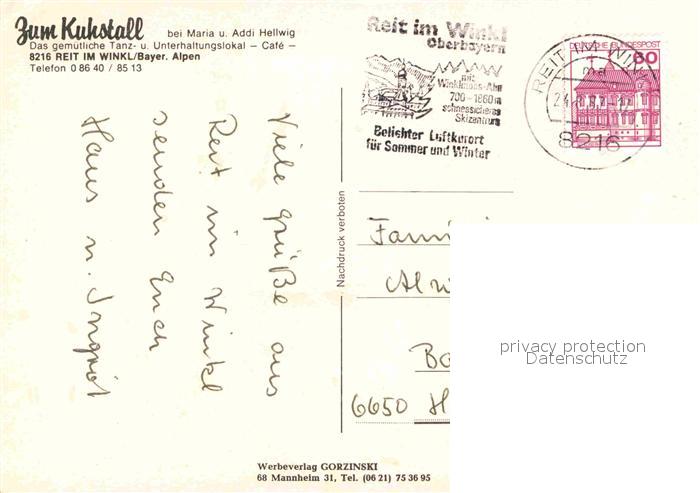 Zum Kuhstall bei Maria u. Addi Hellwig
Das gemütliche Tanz- u. Unterhaltungslokal – Café –
8216 REIT IM WINKL/Bayer. Alpen
Telefon 0 86 40 / 85 13
Reit im Winkl
Oberbayern
mit
Winklmoos-Alm
700-1860m
schneesicheres
Skizentrum
Beliebter Luftkurort
für Sommer und Winter
REIT IM WINKL
8216
DEUTSCHE BUNDESPOST
60
Viele Grüße aus
Reit im Winkl
senden Euch
Hans u. Ingrid
Nachdruck verboten
Fami
6650 H
privacy protection
Datenschutz
Werbeverlag GORZINSKI
68 Mannheim 31, Tel. (06 21) 75 36 95